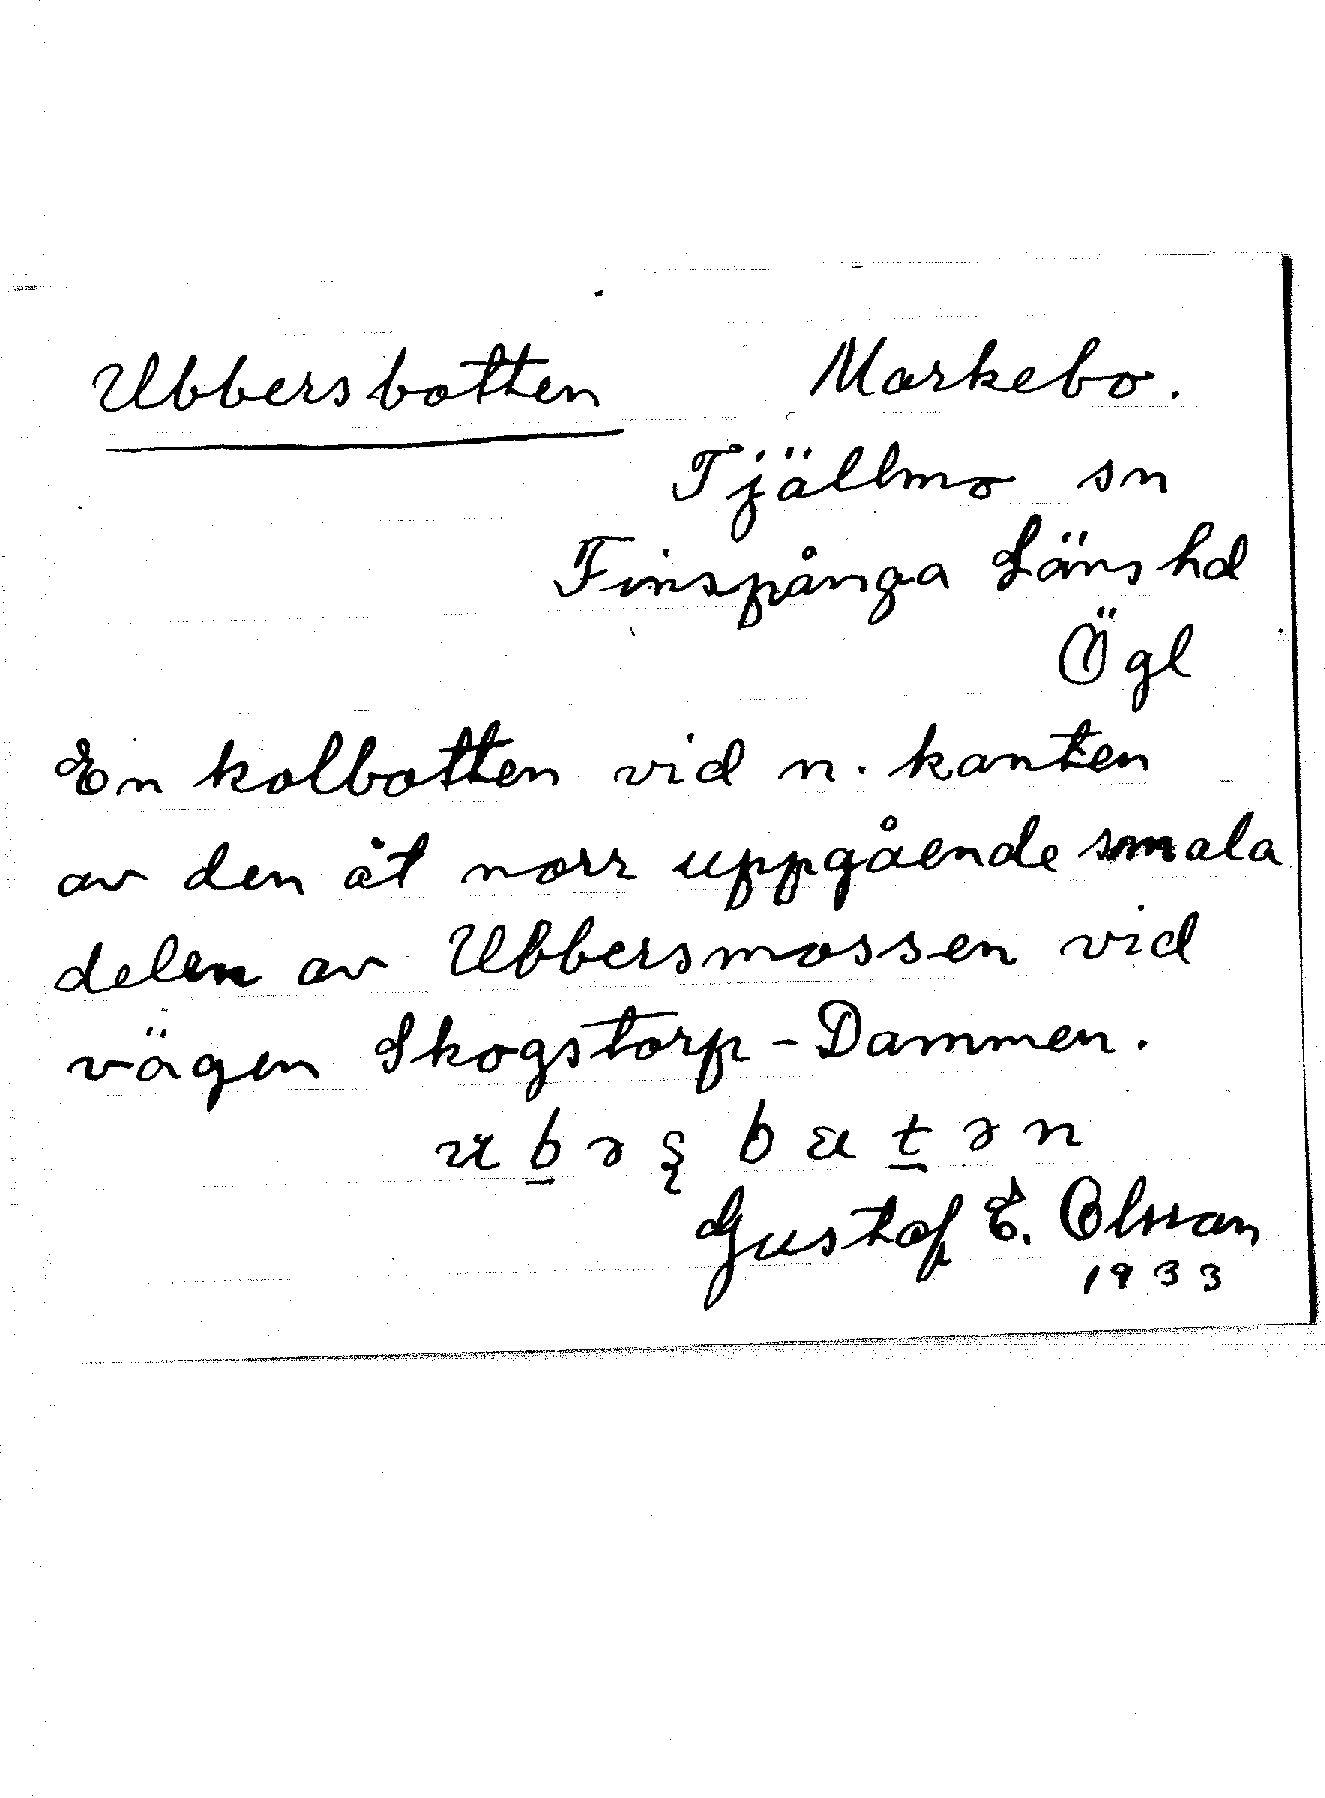 Ubbersbotten Markebo.
Tjällmo sn
Finspånga Läns hd
Ögl
En kolbotten vid n. kanten
av den åt norr uppgående smala
delen av Ubbersmossen vid
vägen Skogstorp - Dammen.
Gustaf E. Olsson
1933